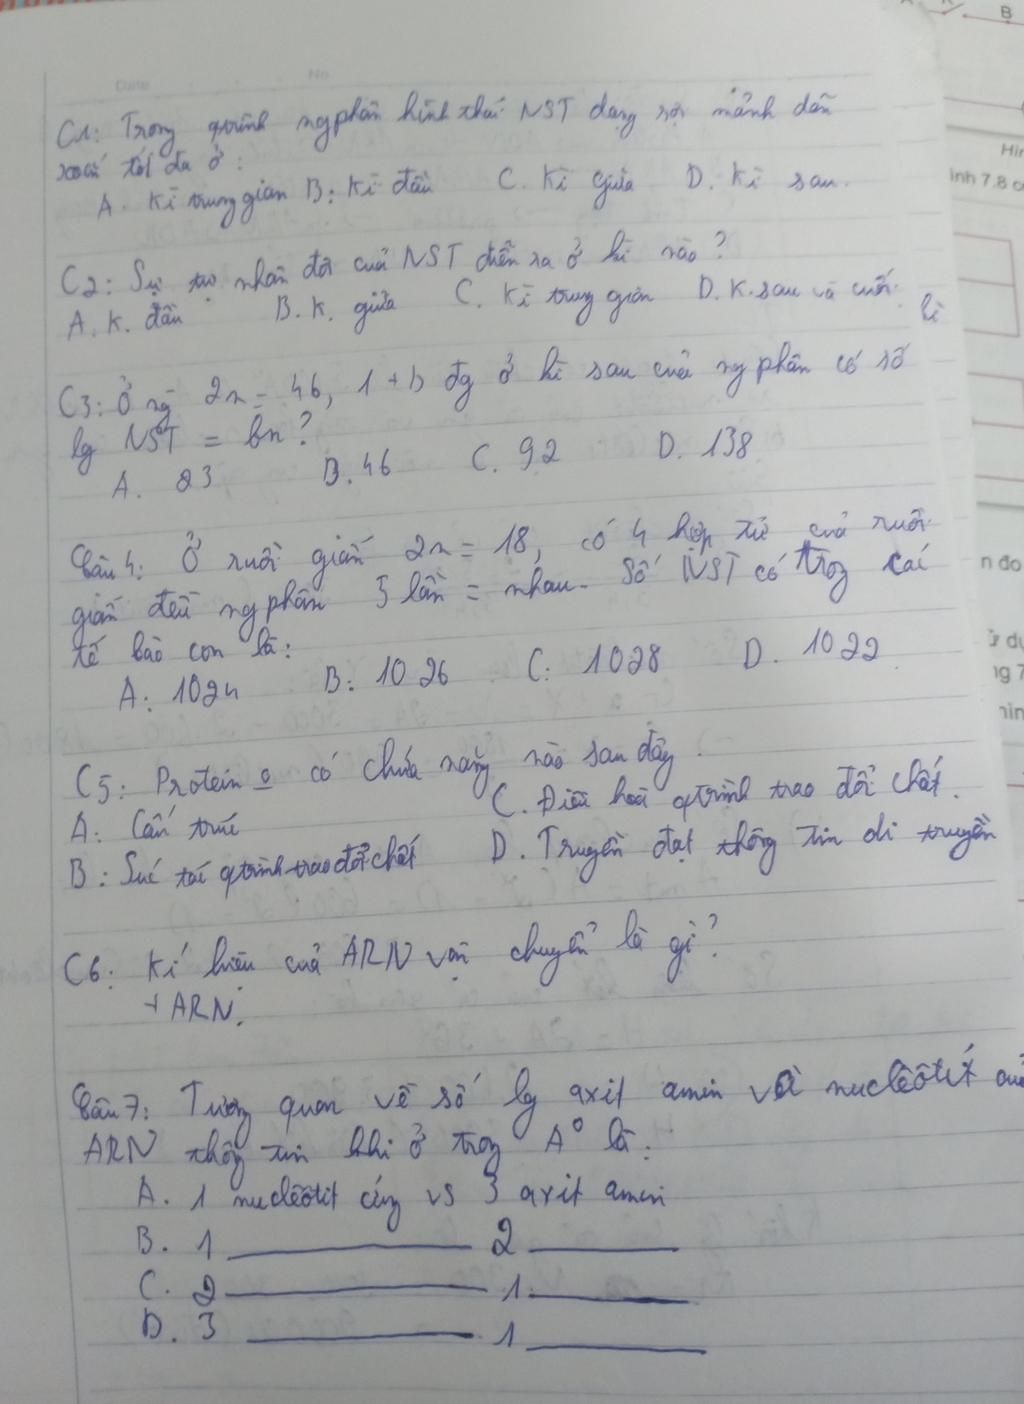 Date No
B
Hìn
ình 7.8 c
C1: Trong qtrình ngphân hình thái NST dạng sợi mảnh dãn
xoắn tối đa ở :
A. Kì trung gian B: Kì đầu C. Kì giữa D. Kì sau.
C2: Sự tự nhân đôi của NST diễn ra ở kì nào ?
A. K. đầu B. K. giữa C. Kì trung gian D. K. sau và cuối.
kì
C3: Ở ng 2n = 46, 1 tb đg ở kì sau của ng phân có số
lg NST = bn ?
A. 23 B. 46 C. 92 D. 138
Câu 4: Ở ruồi giấm 2n = 18, có 4 hợp tử của ruồi
giấm đều ng phân 5 lần = nhau. Số NST có trog các
tế bào con là:
A: 1024 B: 1026 C: 1028 D. 1022
n đo
C5: Protein o có chức năng nào sau đây.
A: Cấu trúc C. Điều hoà qtrình trao đổi chất.
B: Xúc tác qtrình trao đổi chất D. Truyền đạt thông tin di truyền
C6: Kí hiệu của ARN vận chuyển là gì ?
tARN.
Câu 7: Tương quan về số lg axit amin và nuclêôtit của
ARN thông tin khi ở trog A° là:
A. 1 nuclêôtit ứng vs 3 axit amin
B. 1 2
C. 2 1
D. 3 1